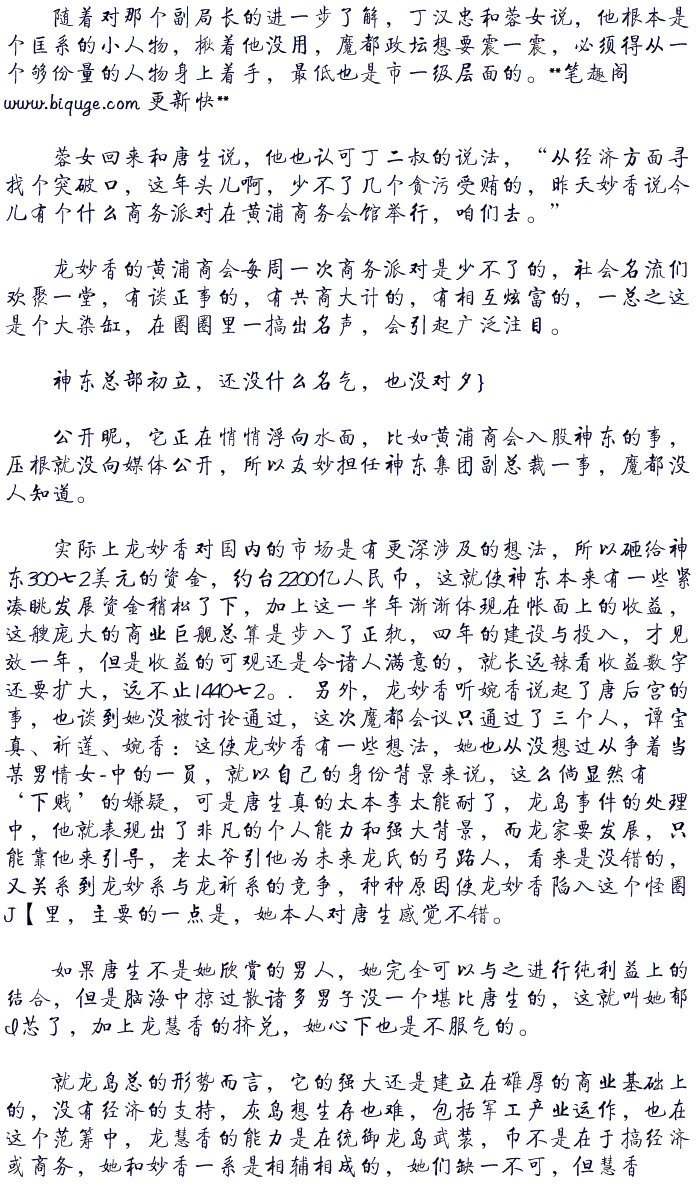 随着对那个副局长的进一步了解，丁汉忠和蓉女说，他根本是
个匡系的小人物，揪着他没用，魔都政坛想要震一震，必须得从一
个够份量的人物身上着手，最低也是市一级层面的。**笔趣阁
www.biquge.com 更新快**
蓉女回来和唐生说，他也认可丁二叔的说法，“从经济方面寻
找个突破口，这年头儿啊，少不了几个贪污受贿的，昨天妙香说今
儿有个什么商务派对在黄浦商务会馆举行，咱们去。”
龙妙香的黄浦商会每周一次商务派对是少不了的，社会名流们
欢聚一堂，有谈正事的，有共商大计的，有相互炫富的，一总之这
是个大染缸，在圈圈里一搞出名声，会引起广泛注目。
神东总部初立，还没什么名气，也没对夕}
公开呢，它正在悄悄浮向水面，比如黄浦商会入股神东的事，
压根就没向媒体公开，所以友妙担任神东集团副总裁一事，魔都没
人知道。
实际上龙妙香对国内的市场是有更深涉及的想法，所以砸给神
东300七2美元的资金，约台2200亿人民币，这就使神东本来有一些紧
凑眺发展资金稍松了下，加上这一半年渐渐体现在帐面上的收益，
这艘庞大的商业巨舰总算是步入了正轨，四年的建设与投入，才见
效一年，但是收益的可观还是令诸人满意的，就长远辣看收益数字
还要扩大，远不止1440七2。．另外，龙妙香听婉香说起了唐后宫的
事，也谈到她没被讨论通过，这次魔都会议只通过了三个人，谭宝
真、祈莲、婉香：这使龙妙香有一些想法，她也从没想过从争着当
某男情女-中的一员，就以自己的身份背景来说，这么倘显然有
‘下贱’的嫌疑，可是唐生真的太本李太能耐了，龙岛事件的处理
中，他就表现出了非凡的个人能力和强大背景，而龙家要发展，只
能靠他来引导，老太爷引他为未来龙氏的弓路人，看来是没错的，
又关系到龙妙系与龙祈系的竞争，种种原因使龙妙香陷入这个怪圈
J【里，主要的一点是，她本人对唐生感觉不错。
如果唐生不是她欣赏的男人，她完全可以与之进行纯利益上的
结合，但是脑海中掠过散诸多男子没一个堪比唐生的，这就叫她郁
d芯了，加上龙慧香的挤兑，她心下也是不服气的。
就龙岛总的形势而言，它的强大还是建立在雄厚的商业基础上
的，没有经济的支持，灰岛想生存也难，包括军工产业运作，也在
这个范筹中，龙慧香的能力是在统御龙岛武装，币不是在于搞经济
或商务，她和妙香一系是相辅相成的，她们缺一不可，但慧香